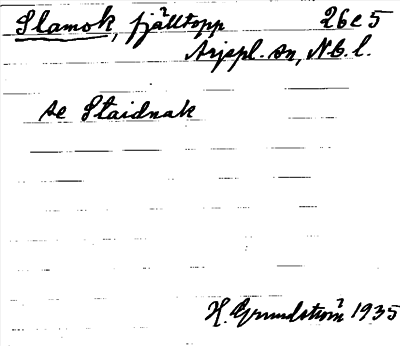 Slamok, fjälltopp 26e5
Arjepl. sn, Nb. l.
se Staidnak
H. Grundström 1935